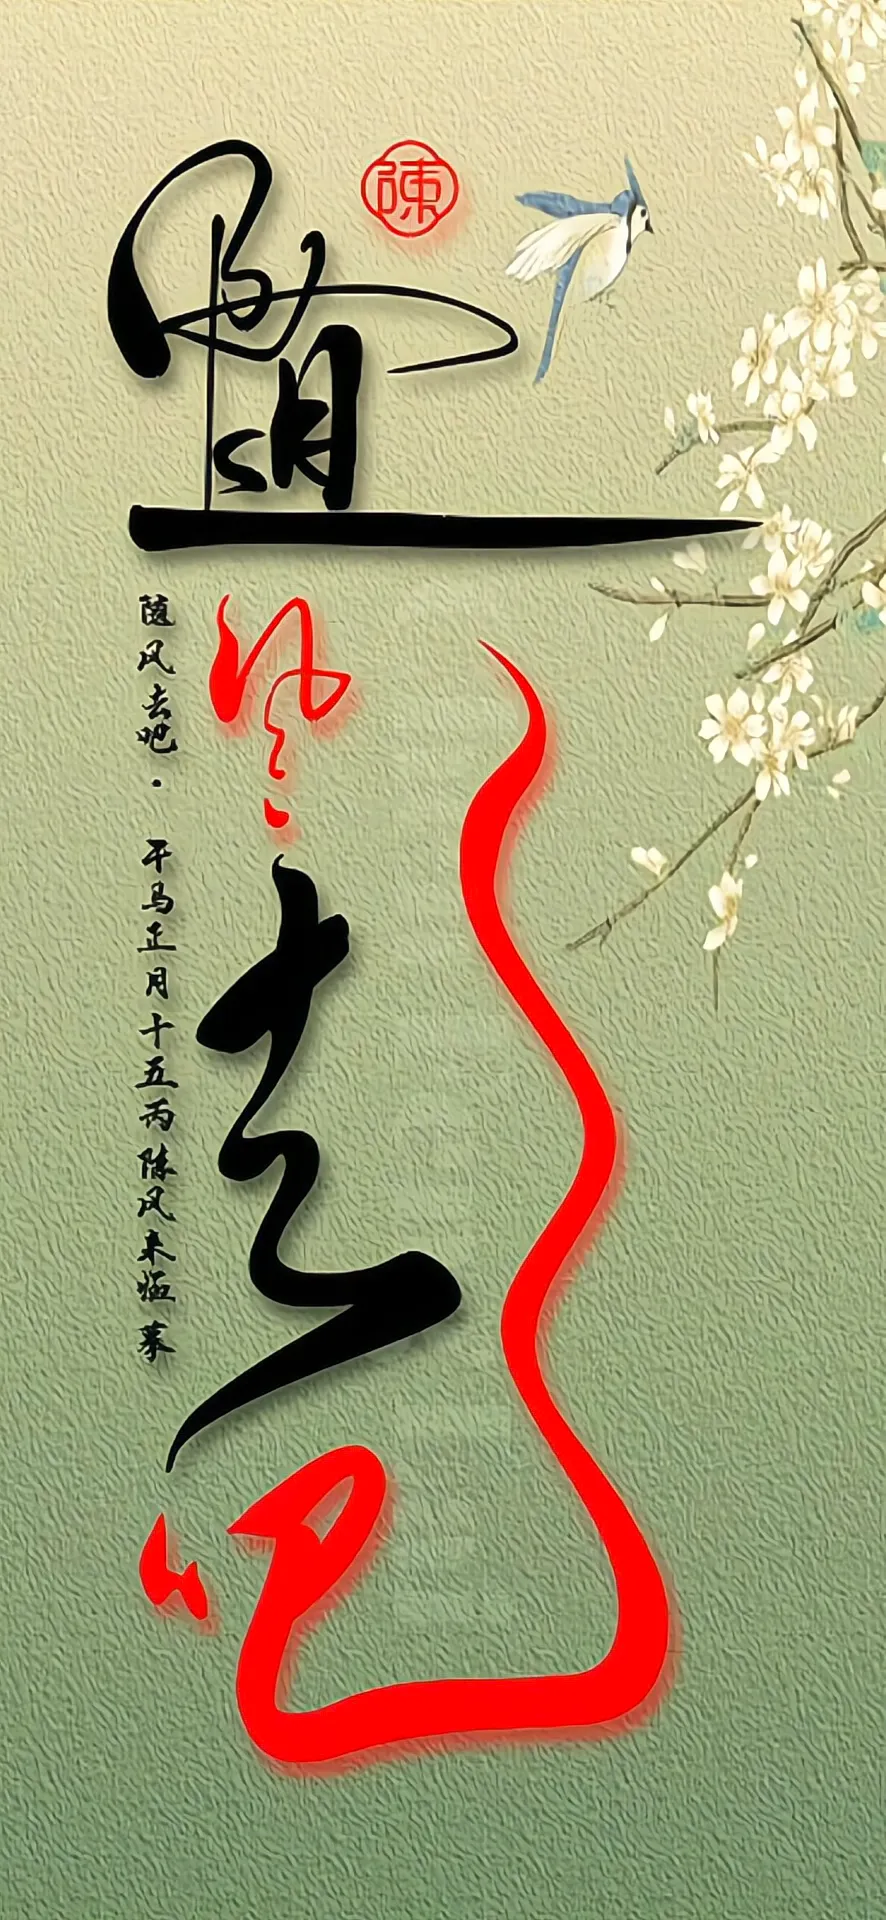 陳
随
风
去
吧
随风去吧·午马正月十五丙陈风来临摹